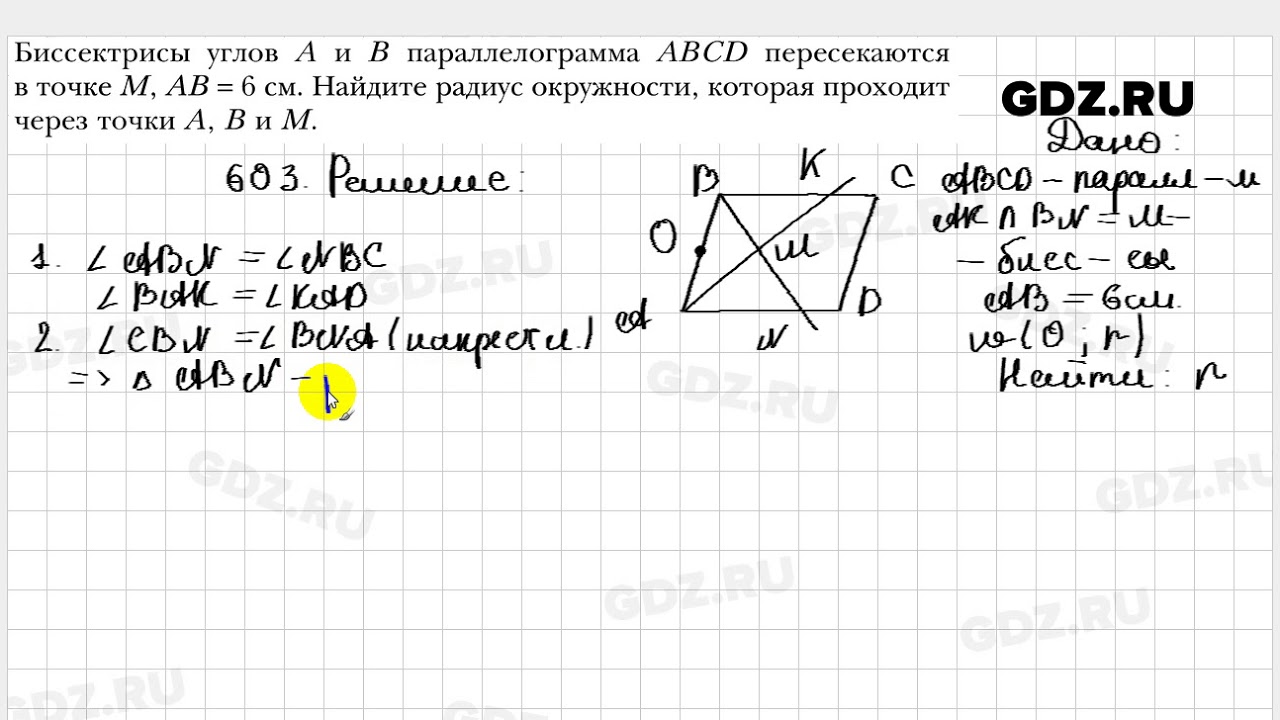 Биссектрисы углов A и B параллелограмма ABCD пересекаются
в точке M, AB = 6 см. Найдите радиус окружности, которая проходит
через точки A, B и M.
GDZ.RU
Дано:
603. Решение:
B K C
ABCD – паралл – м
AK ∩ BN = M –
O
M
– бисс – сы
1. ∠ABN = ∠NBC
∠BAK = ∠KAD
AB = 6 см.
A
D
N
2. ∠CBN = ∠BNA (накрестл.)
ω (O; r)
=> △ABN –
Найти: r
GDZ.RU
GDZ.RU
GDZ.RU
GDZ.RU
GDZ.RU
GDZ.RU
GDZ.RU
GDZ.RU